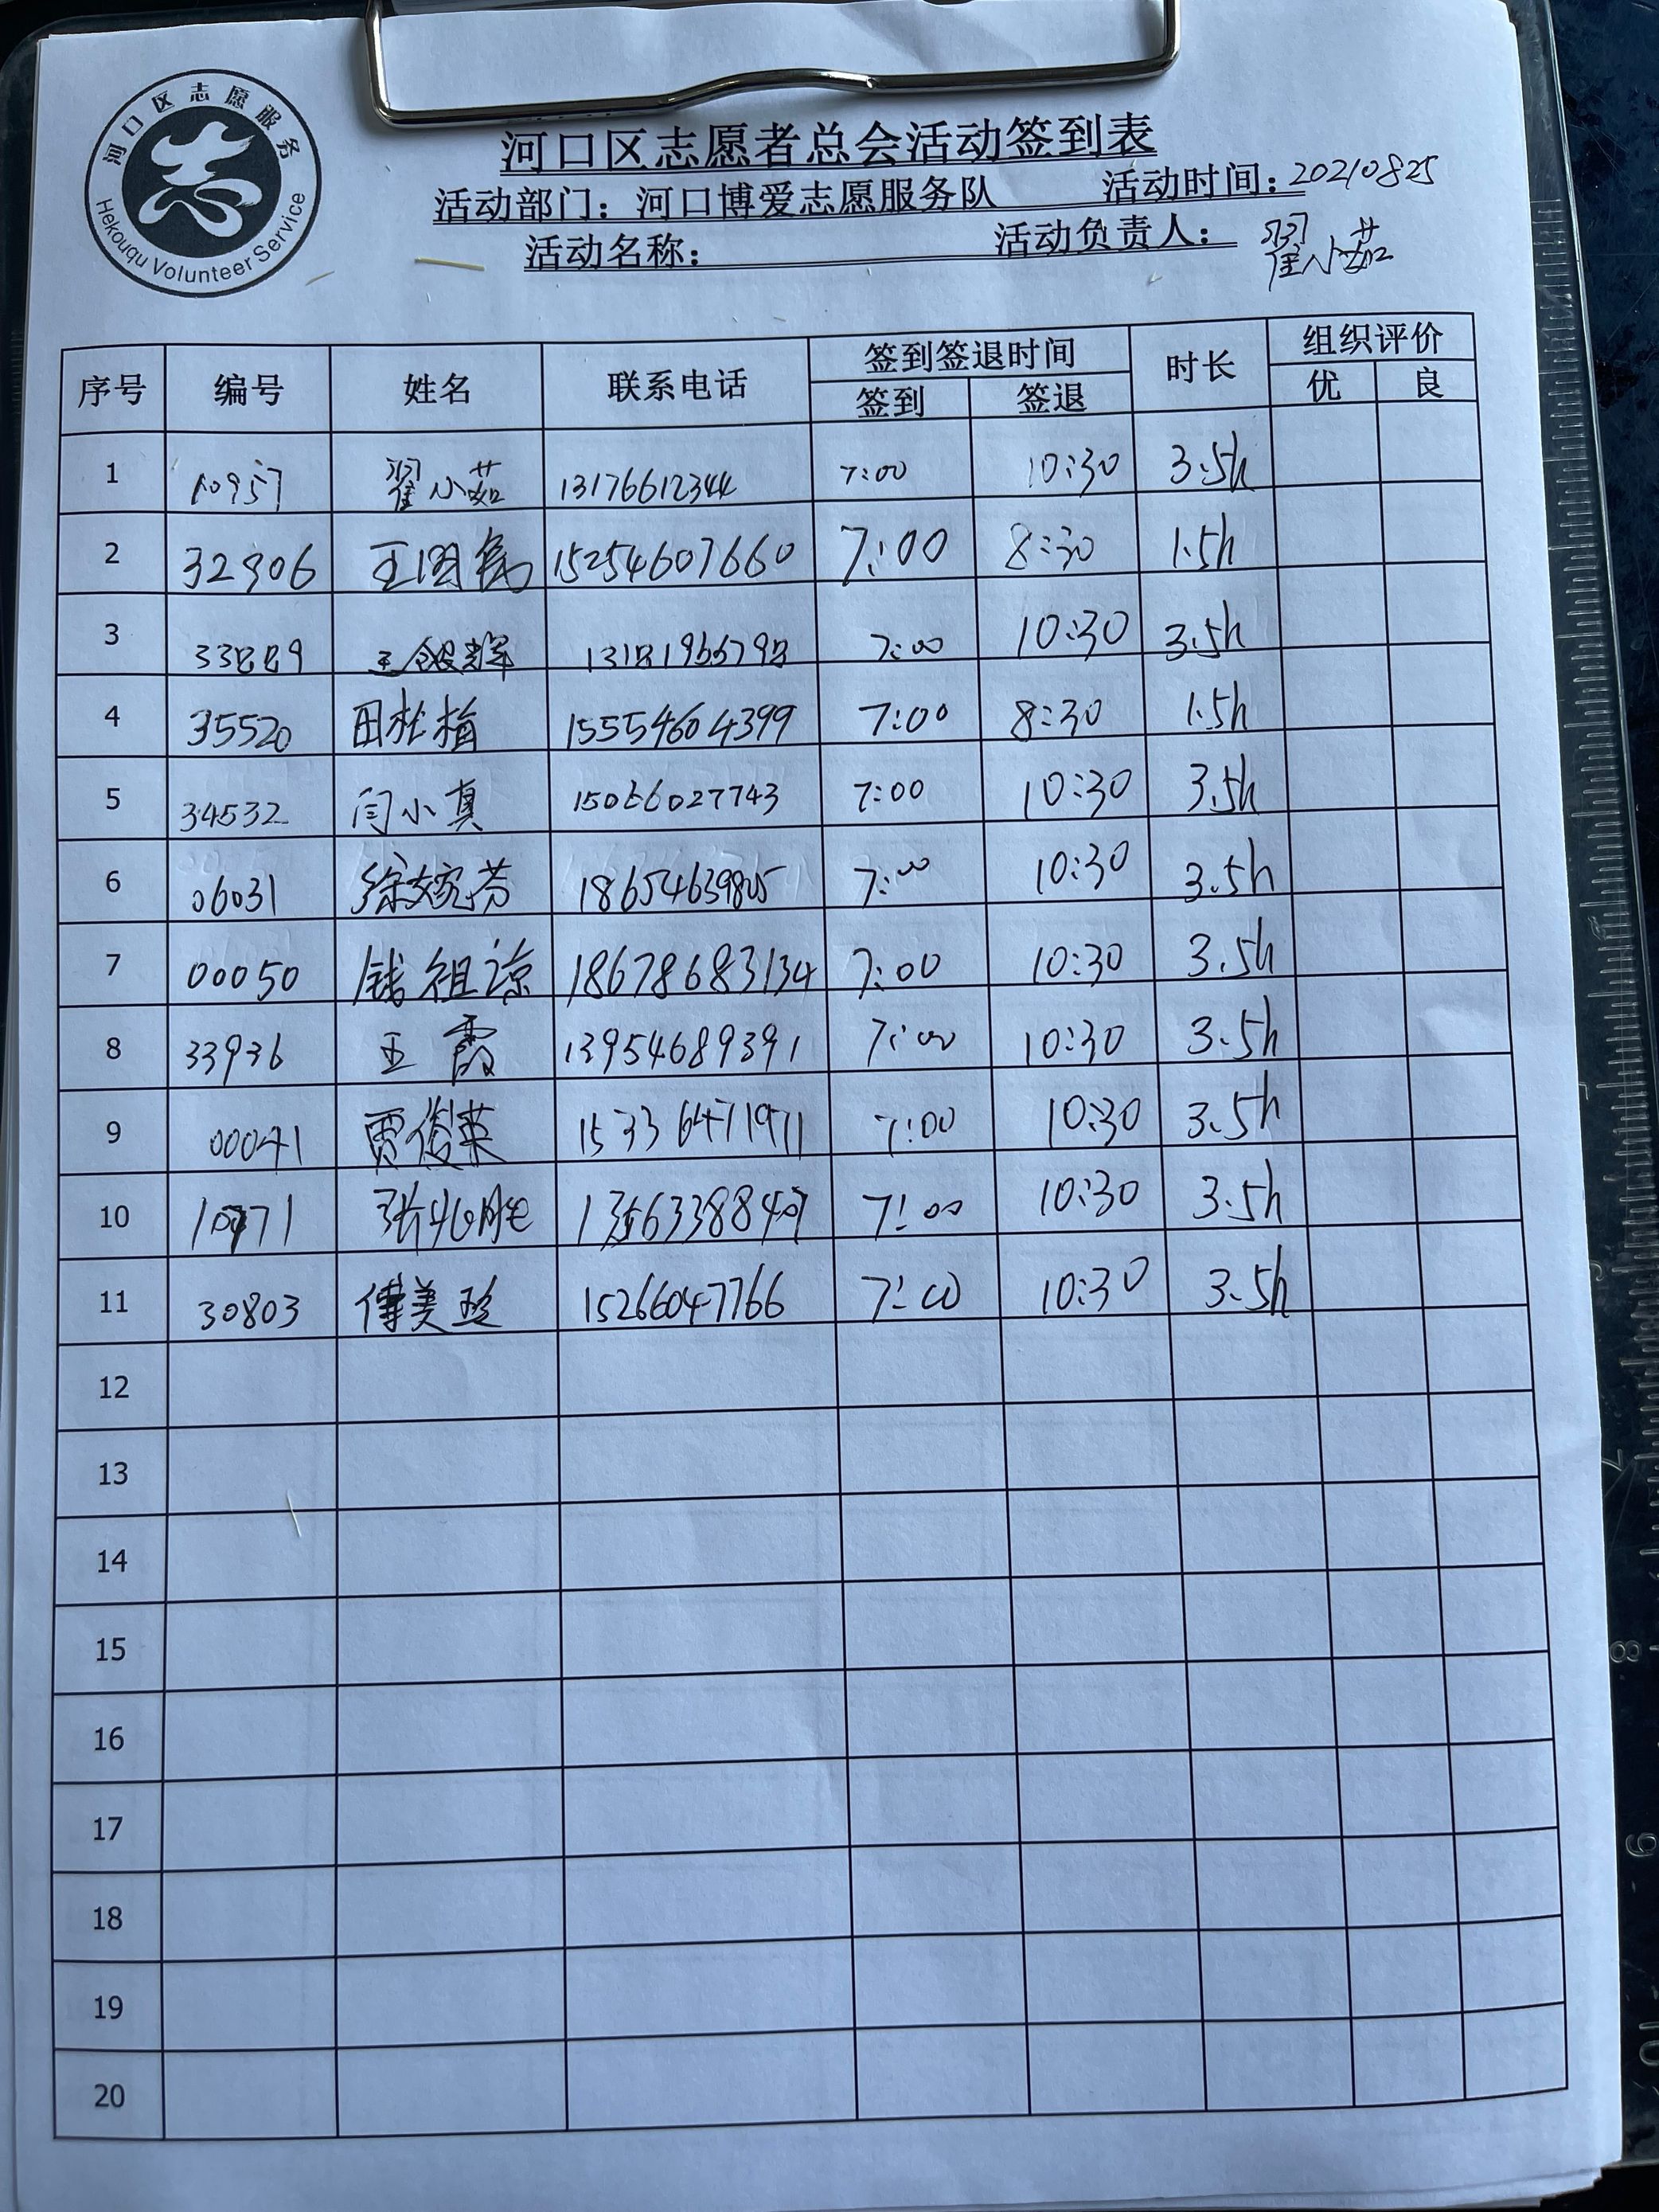 河口区志愿服务
Hekouqu Volunteer Service
河口区志愿者总会活动签到表
活动部门：河口博爱志愿服务队 活动时间：20210825
活动名称： 活动负责人： 翟小茹
序号 编号 姓名 联系电话 签到签退时间 时长 组织评价
签到 签退 优 良
1 10957 翟小茹 13176612344 7:00 10:30 3.5h
2 32906 王国 15254607660 7:00 8:30 1.5h
3 33889 王银辉 13181966798 7:00 10:30 3.5h
4 35520 田桂梅 15554604399 7:00 8:30 1.5h
5 34532 闫小真 15066027743 7:00 10:30 3.5h
6 06031 徐婉芬 18654639805 7:00 10:30 3.5h
7 00050 钱祖谅 18678683134 7:00 10:30 3.5h
8 33936 王霞 13954689391 7:00 10:30 3.5h
9 00041 贾俊英 15336471971 7:00 10:30 3.5h
10 张 7:00 10:30 3.5h
11 30803 傅美珍 15266047766 7:00 10:30 3.5h
12
13
14
15
16
17
18
19
20
8
9
10